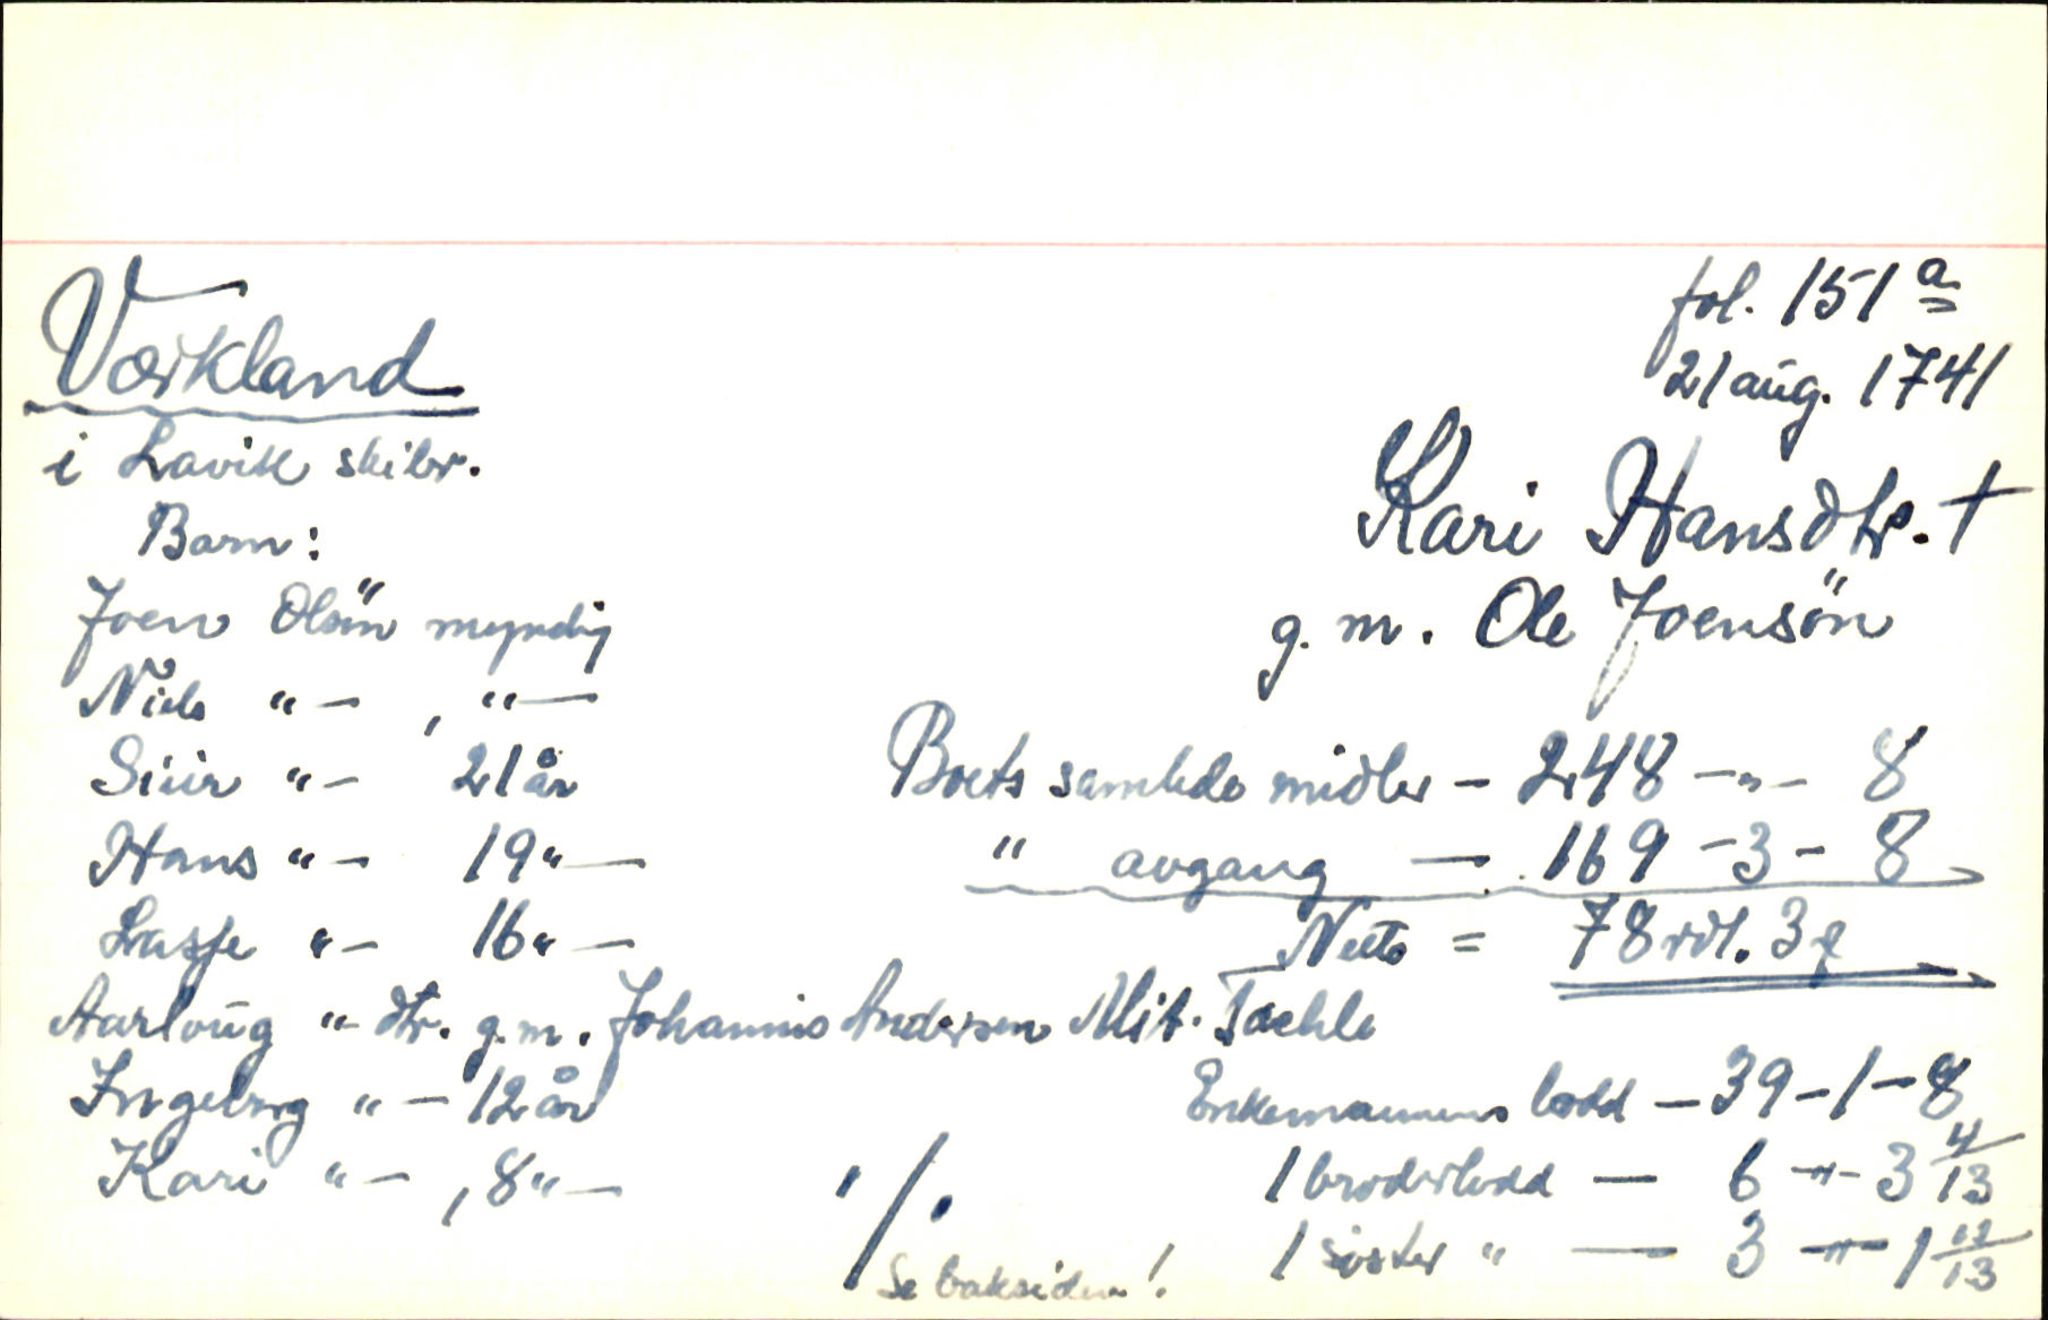 fol. 151 a
21 aug. 1741
Værkland
i Lavik skibr.
Kari Hansdtr. †
g. m. Ole Joensön
Barn:
Joen Olsön myndig
Niels " – , " –
Siur " – 21 år
Hans " – 19 " –
Lasse " – 16 " –
Aarloug " – dtr. g. m. Johannis Andersen Mit. Tachle
Ingebrg " – 12 år
Kari " – , 8 " –
Boets samlede midler – 248 – " – 8
" avgang – 169 – 3 – 8
Netto = 78 rdl. 3 ƒ
Enkemannens lodd – 39 – 1 – 8
1 broderlodd – 6 – " – 3 4/13
1 søster " – 3 – " – 1 /13
./.
Se baksiden!